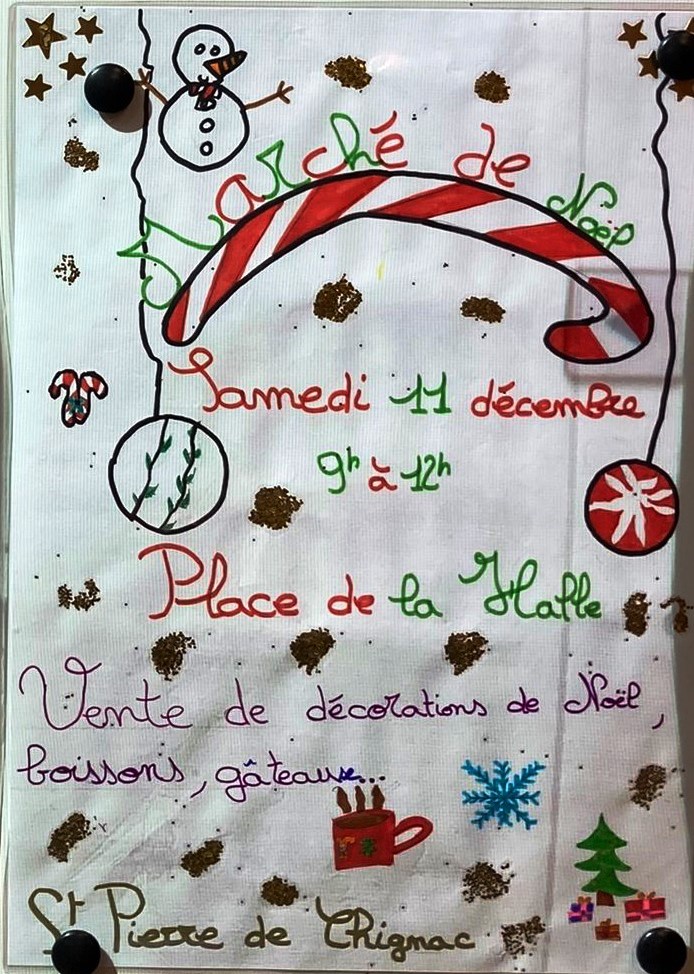 Marché de Noël
Samedi 11 décembre
9h à 12h
Place de la Halle
Vente de décorations de Noël,
boissons, gâteaux...
St Pierre de Chignac